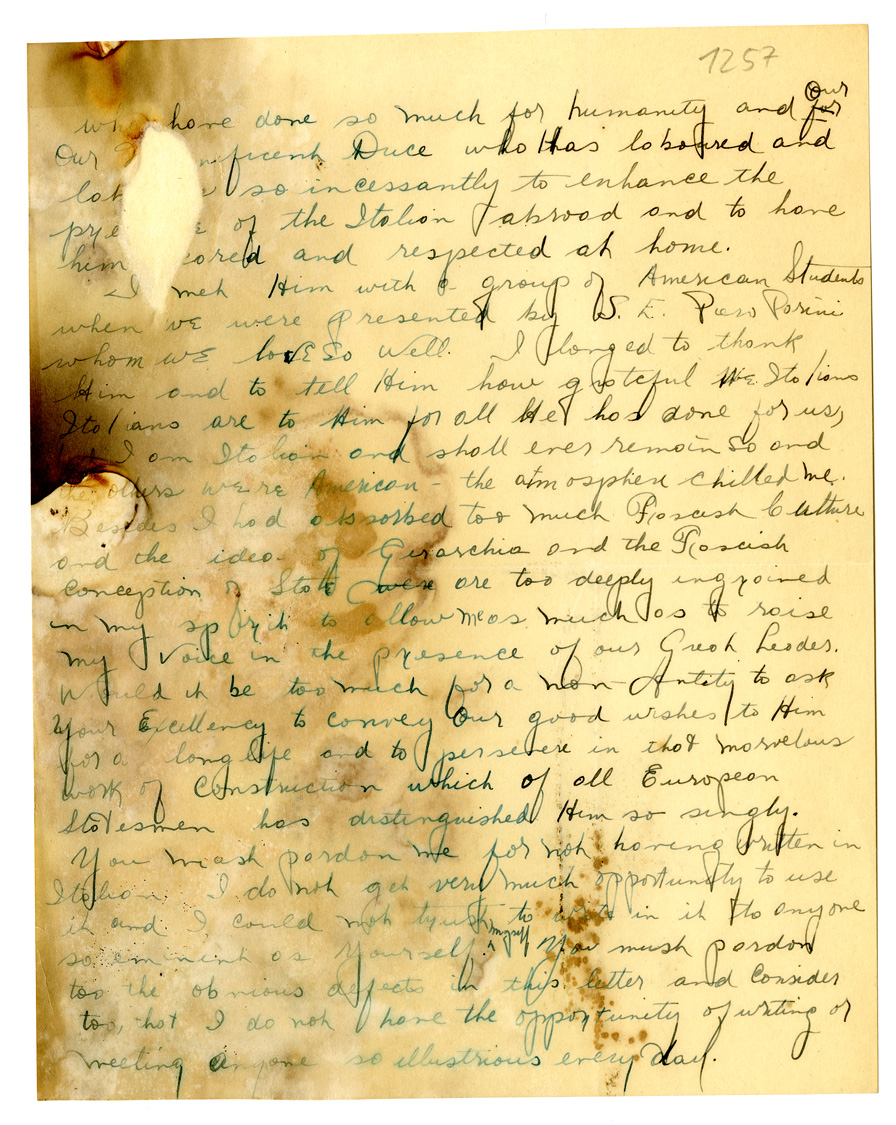 1257
our
who have done so much for humanity and for
Our nificent Duce who has laboured and
so incessantly to enhance the
of the Italian abroad and to have
him and respected at home.
I met Him with a group of American Students
when we were presented by S. E. Piero Parini
whom we love so well. I longed to thank
Him and to tell Him how grateful We Italians
Italians are to Him for all He has done for us,
I am Italian and shall ever remain so and
the others were American - the atmosphere chilled me.
Besides I had absorbed too much Fascist Culture
and the idea of Gerarchia and the Fascist
Conception of State were are too deeply ingrained
in my spirit to allow me as much as to raise
my voice in the presence of our Great Leader.
Would it be too much for a non-Antity to ask
Your Excellency to convey Our good wishes to Him
for a long life and to persevere in that marvelous
work of Construction which of all European
Statesmen has distinguished Him so singly.
You must pardon me for not having written in
Italian. I do not get very much opportunity to use
it and I could not trust to write in it to anyone
myself
so eminent as Yourself. You must pardon
too the obvious defects in this letter and Consider
too, that I do not have the opportunity of writing or
meeting anyone so illustrious every day.